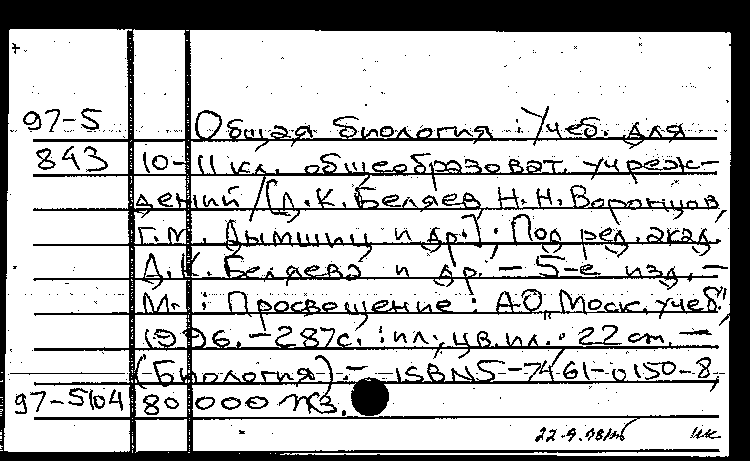 97-5 Общая биология : Учеб. для
843 10-11 кл. общеобразоват. учреж-
дений / [Д.К. Беляев, Н.Н. Воронцов,
Г.М. Дымшиц и др.]; Под ред. акад.
Д.К. Беляева и др. - 5-е изд. -
М. : Просвещение : АО "Моск. учеб.",
1996. - 287с. : ил., цв.ил. ; 22 см. -
(Биология). - ISBN 5-7461-0150-8,
97-5104 80 000 экз.
22.9.98